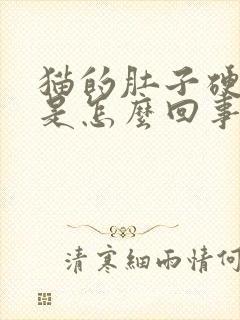 猫的肚子硬
是怎麼回事
清寒細雨情何